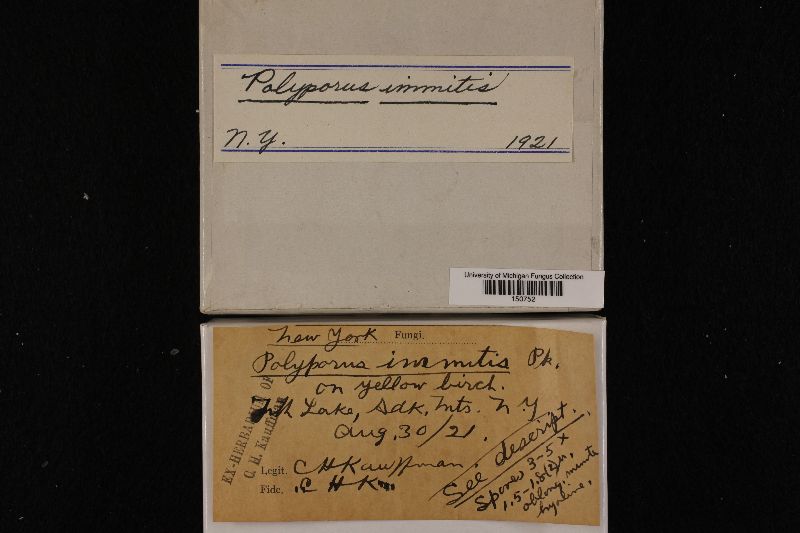 Polyporus immitis
N.Y. 1921
University of Michigan Fungus Collection
150752
New York Fungi.
Polyporus immitis Pk.
on yellow birch.
Lake, Adk. Mts. N.Y
Aug. 30/21.
EX-HERBARIUM OF
C. H. Kauffman
Legit. C H Kauffman
Fide. C H K
See descript.
Spores 3-5 x
1.5- μ,
oblong. minute
hyaline.